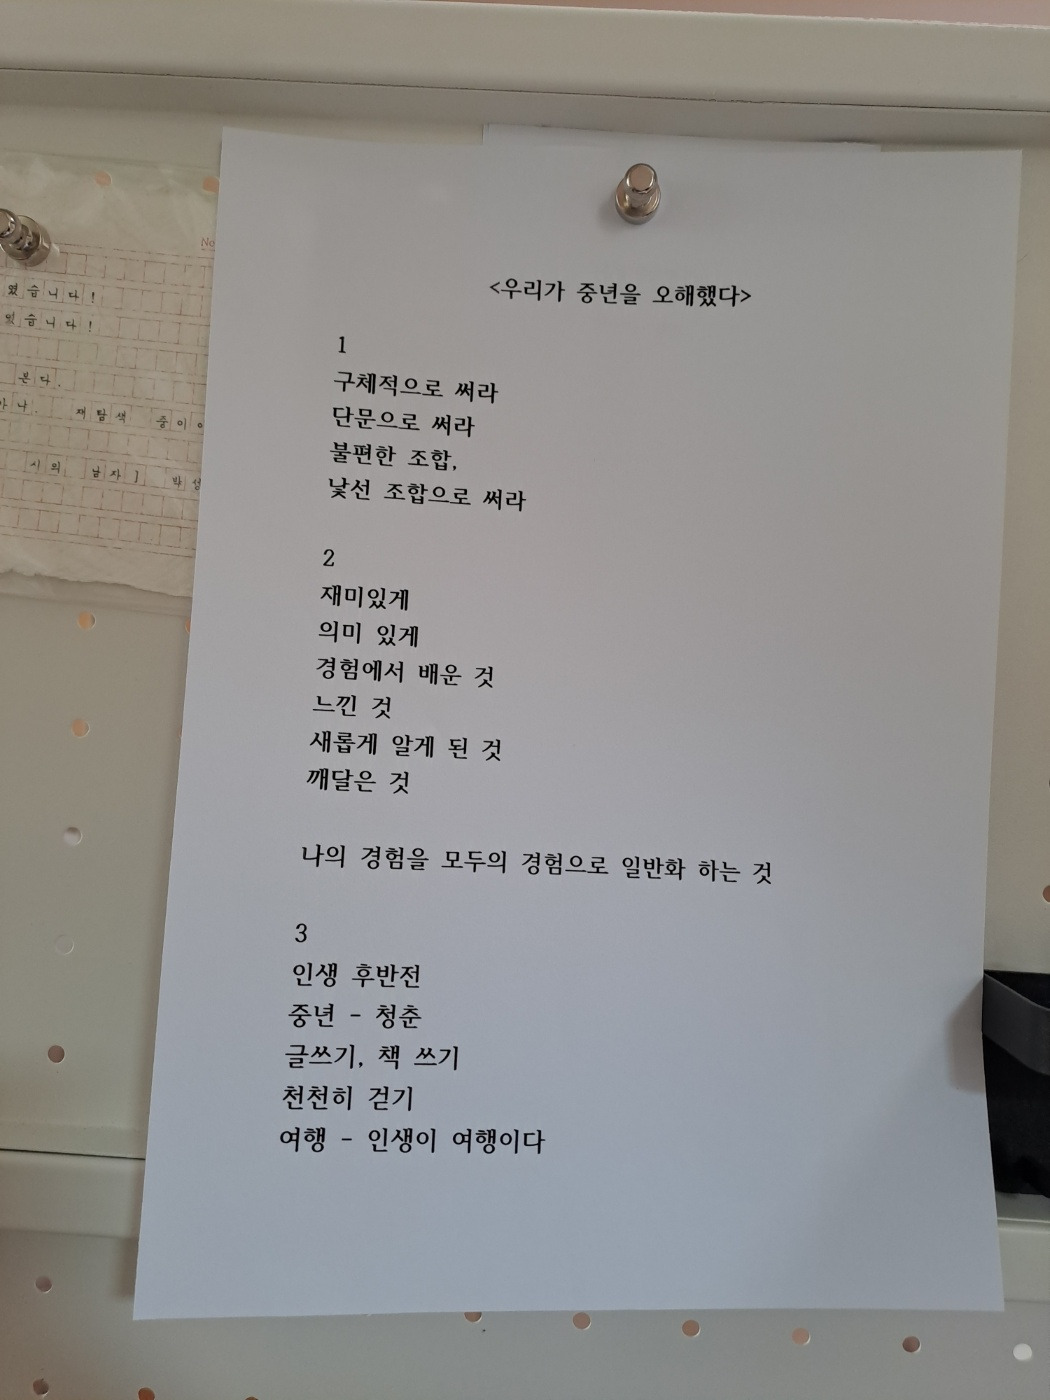 <우리가 중년을 오해했다>
1
구체적으로 써라
단문으로 써라
불편한 조합,
낯선 조합으로 써라
2
재미있게
의미 있게
경험에서 배운 것
느낀 것
새롭게 알게 된 것
깨달은 것
나의 경험을 모두의 경험으로 일반화 하는 것
3
인생 후반전
중년 - 청춘
글쓰기, 책 쓰기
천천히 걷기
여행 - 인생이 여행이다
No
였습니다!
있습니다!
본다.
재탐색 중이
시의 남자] 박성